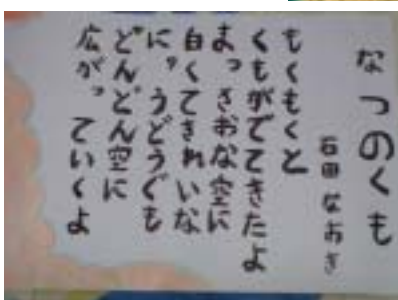 なつのくも
石田 なおき
もくもくと
くもがでてきたよ
まっさおな空に
白くてきれいな
に゛うどうぐも
どんどん空に
広がっていくよ